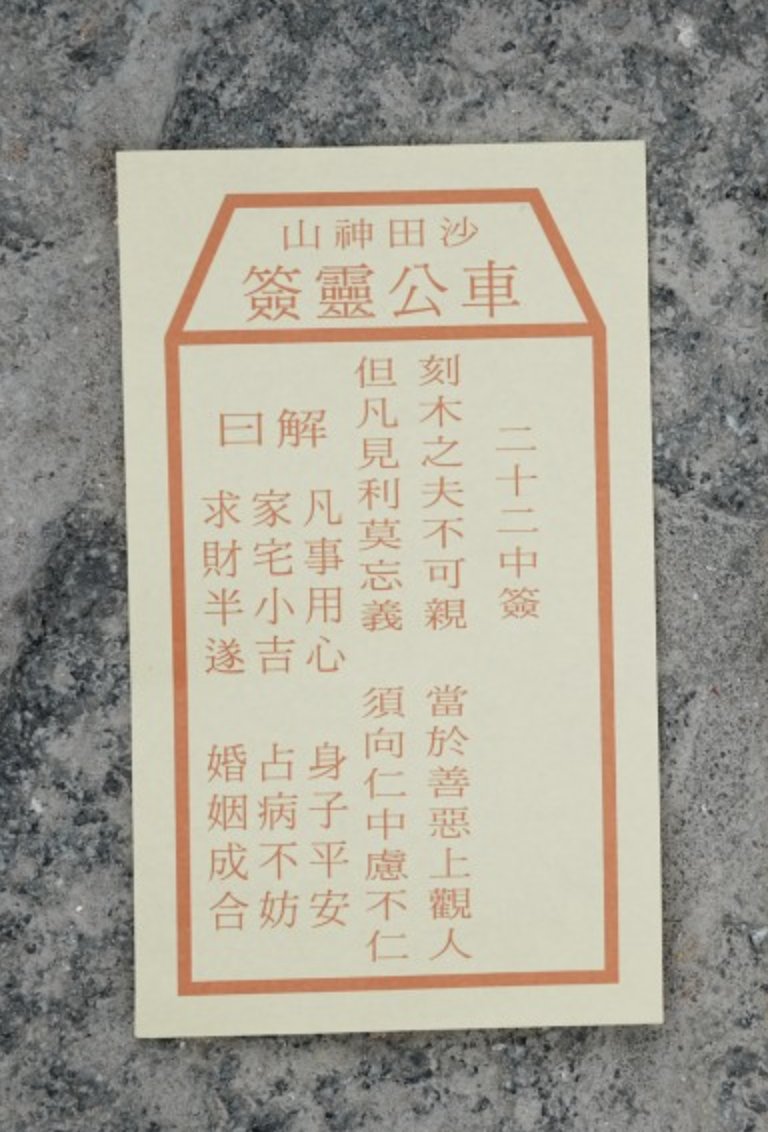 沙田神山
車公靈簽
二十二中簽
刻木之夫不可親　當於善惡上觀人
但凡見利莫忘義　須向仁中慮不仁
解曰
凡事用心　身子平安
家宅小吉　占病不妨
求財半遂　婚姻成合